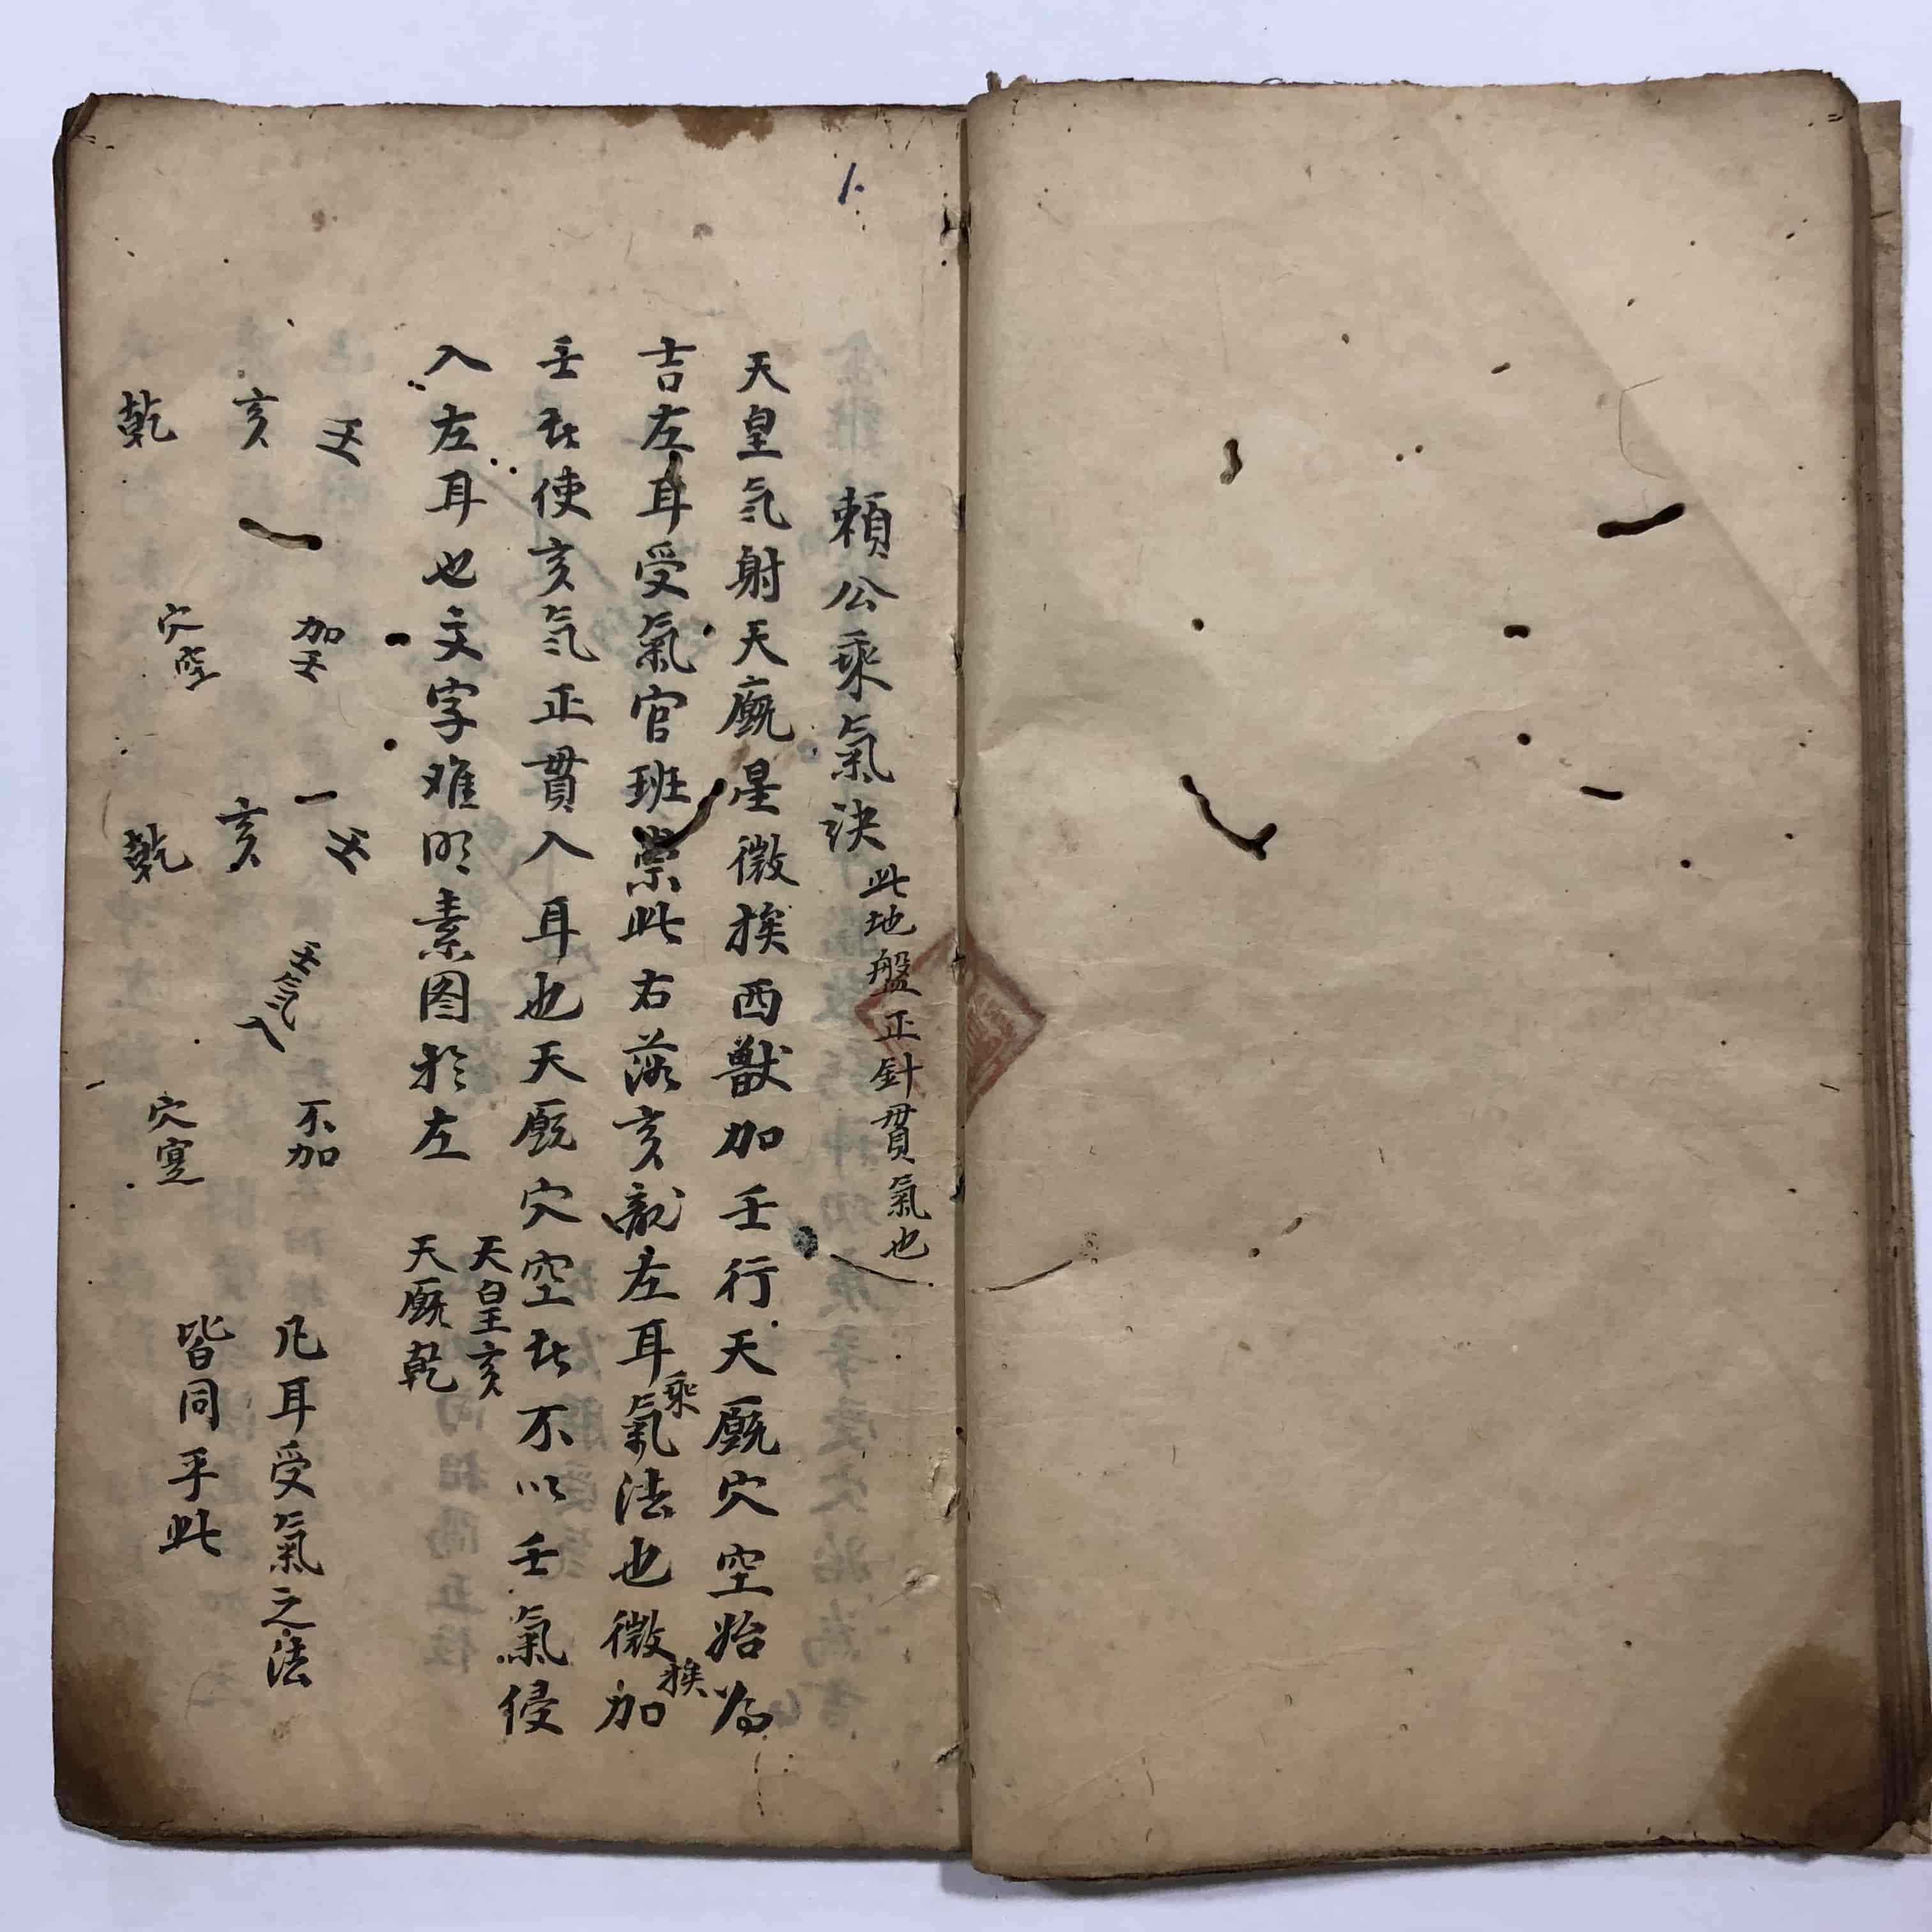 1.
賴公乘氣訣 此地盤正針貫氣也
天皇气射天廐星微挨西獸加壬行天廐穴空始为
吉左耳受氣官班崇此右落亥龍左耳乘氣法也微挨加
壬者使亥气正貫入耳也天廐穴空者不以壬氣侵
入左耳也文字难明素图於左
天皇亥
天廐乾
壬
亥
乾
加壬
穴空
壬
亥
乾
壬气入
不加
穴寔
凡耳受氣之法
皆同乎此